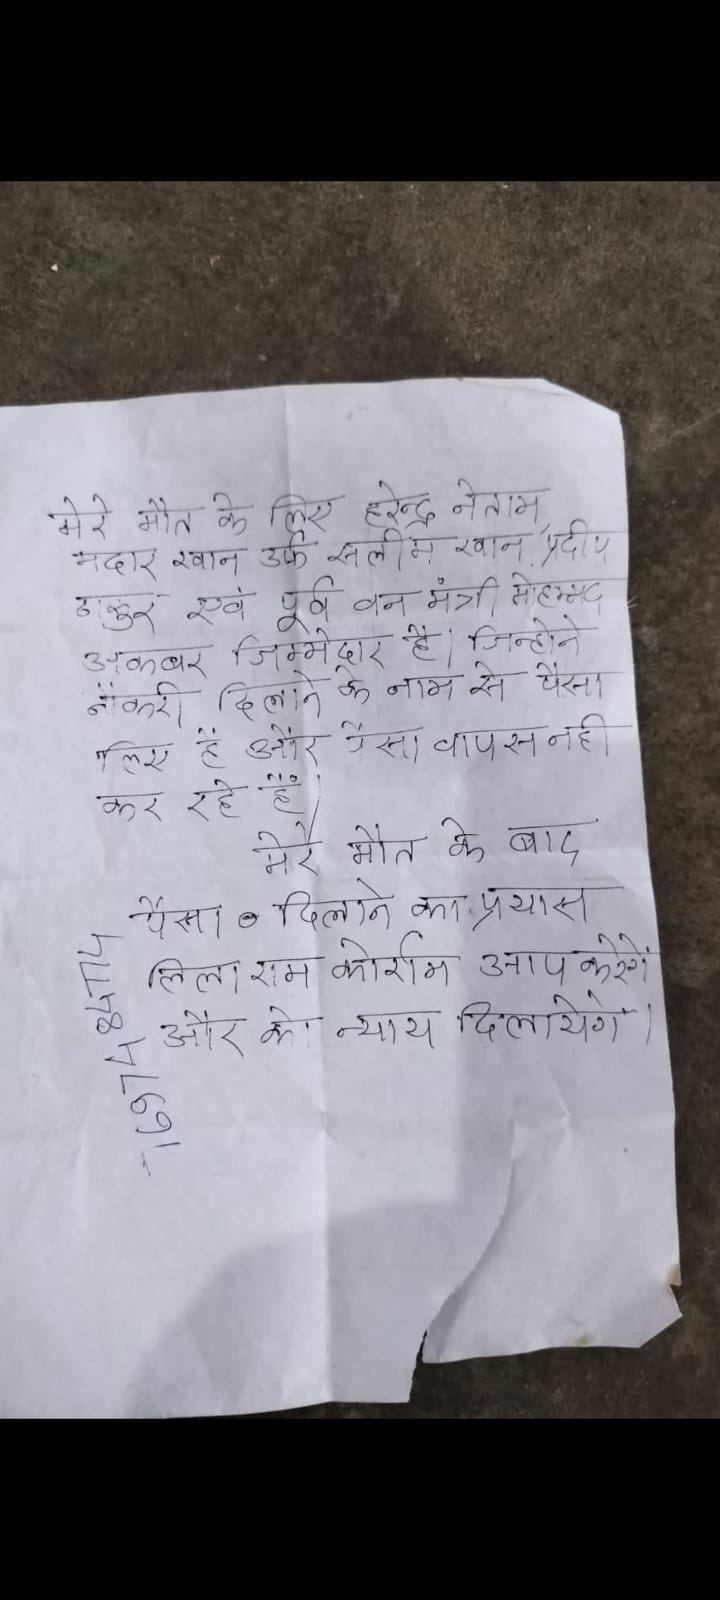 मेरे मौत के लिए हरेन्द्र नेताम,
मदार खान उर्फ सलीम खान, प्रदीप
ठाकुर एवं पूर्व वन मंत्री मोहम्मद
अकबर जिम्मेदार है। जिन्होने
नौकरी दिलाने के नाम से पैसा
लिए हैं और पैसा वापस नही
कर रहे हैं।
मेरे मौत के बाद
पैसा दिलाने का प्रयास
लिलाराम कोर्राम आप करेगें
और को न्याय दिलायेगे।